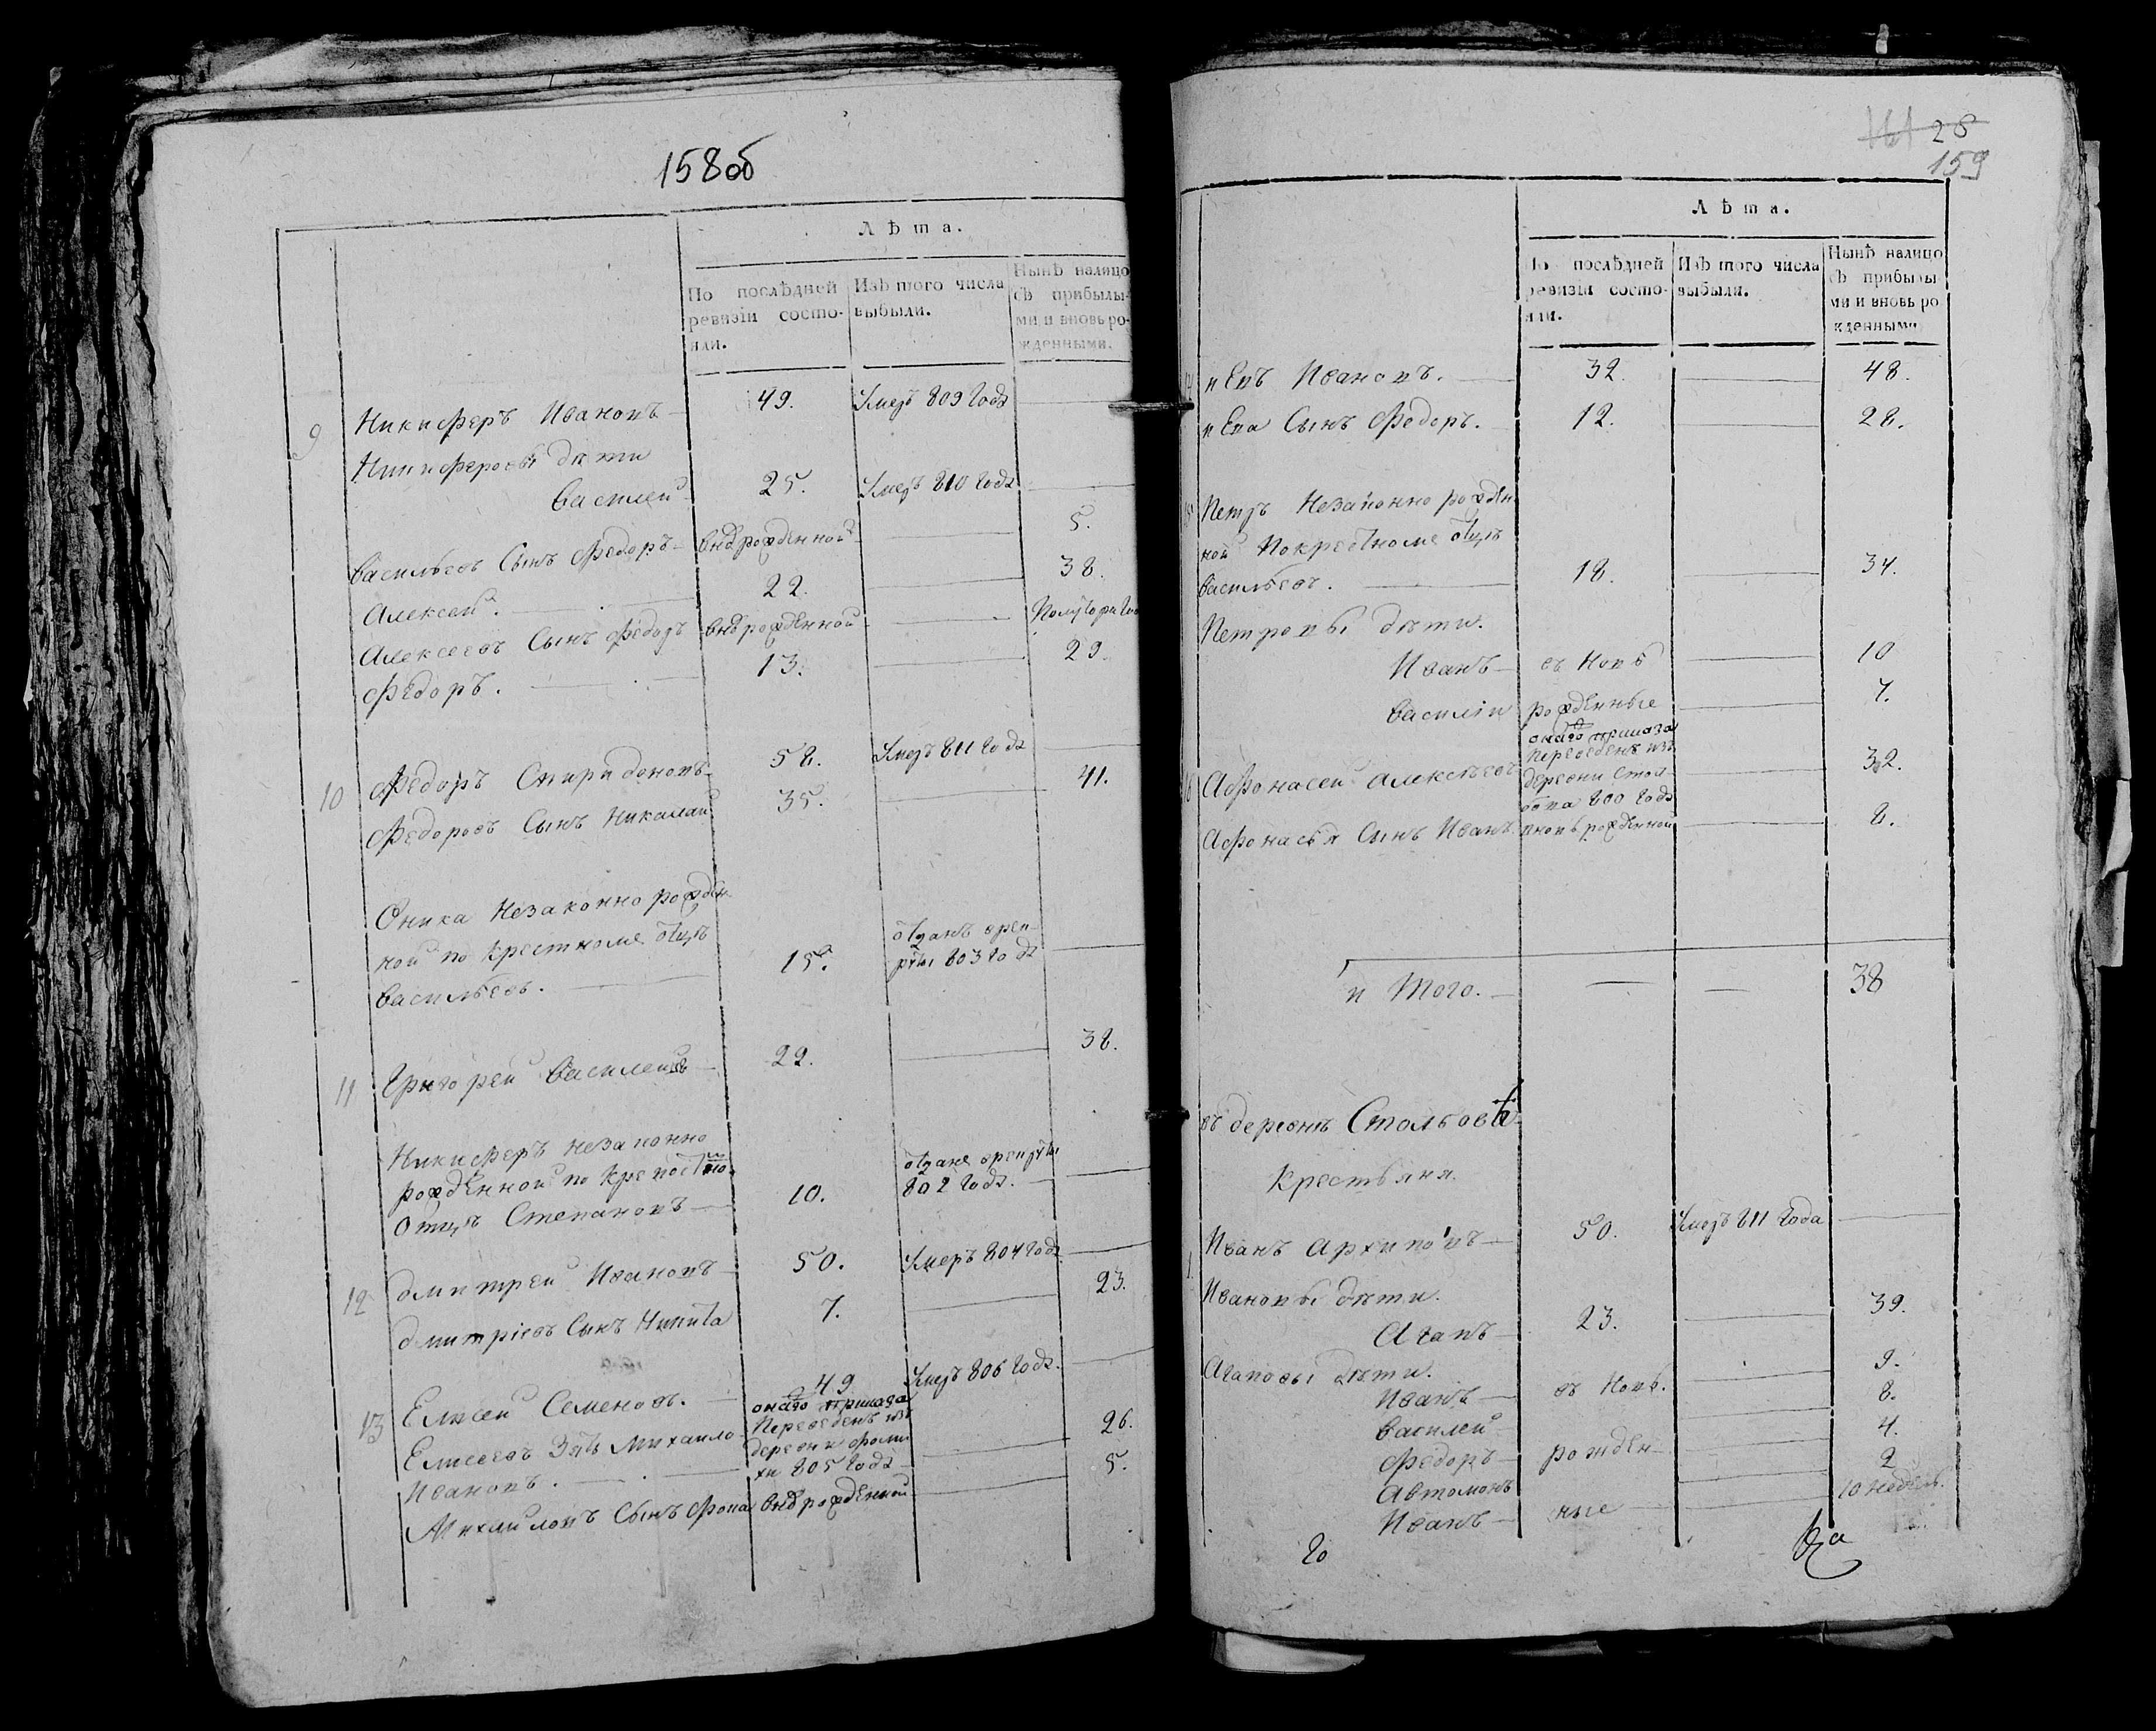 158об
Лѣта.
По послѣдней ревизіи состояли.
Изъ того числа выбыли.
Нынѣ налицо съ прибылыми и вновь рожденными.
9 Никифоръ Ивановъ 49. Умеръ 809 года
Никифоровы дѣти
Василей 25. Умеръ 810 года
Васильевъ Сынъ Федоръ внѣрожденной 5.
Алексей. 22. 38.
Алексеевъ Сынъ Федоръ внѣрожденной Полутора го
Федоръ. 13. 29.
10 Федоръ Спиридоновъ 58. Умеръ 811 года
Федоровъ Сынъ Николай 35. 41.
Оника Незаконно рожден
ной по крестноме отцѣ
Васильевъ. 15. отданъ врек
руты 803 года
11 Григорей Василевъ 22. 38.
Никифоръ незаконно
рожденной по крестно
отцѣ Степановъ 10. отдане врекруты
802 года.
12 Дмитрей Ивановъ 50. Умеръ 804 года
Дмитріевъ Сынъ Никита 7. 23.
13 Елисей Семеновъ. 49 Умеръ 806 года.
Елисеевъ Зять Михаило
Ивановъ. онаго приказа
переведенъ изъ
деревни
805 года 26.
Михайловъ Сынъ Фока внѣрожденной 5.
161 28
159
Лѣта.
По послѣдней ревизіи состояли.
Изъ того числа выбыли.
Нынѣ налицо съ прибылыми и вновь рожденными
Ивановъ. 32. 48.
Сынъ Федоръ. 12. 28.
Петръ Незаконно рожден
ной Покрестноме отцѣ
Васильевъ. 18. 34.
Петровы дѣти.
Иванъ въ новѣ 10
Василіи рожденные 7.
Афонасей Алексѣевъ онаго приказа
переведенъ изъ
деревни Стол
бова 800 года 32.
Афонасья Сынъ Иванъ вновь рожденной 8.
и Того. 38
въ деревнѣ Столбовѣ
Крестьяня.
1 Иванъ Архиповъ 50. Умеръ 811 года
Ивановы дѣти.
Агапъ 23. 39.
Агаповы дѣти.
Иванъ въ новѣ. 9.
Василей 8.
Федоръ рожден 4.
Автомонъ 2
Иванъ ные 10 недѣль.
го